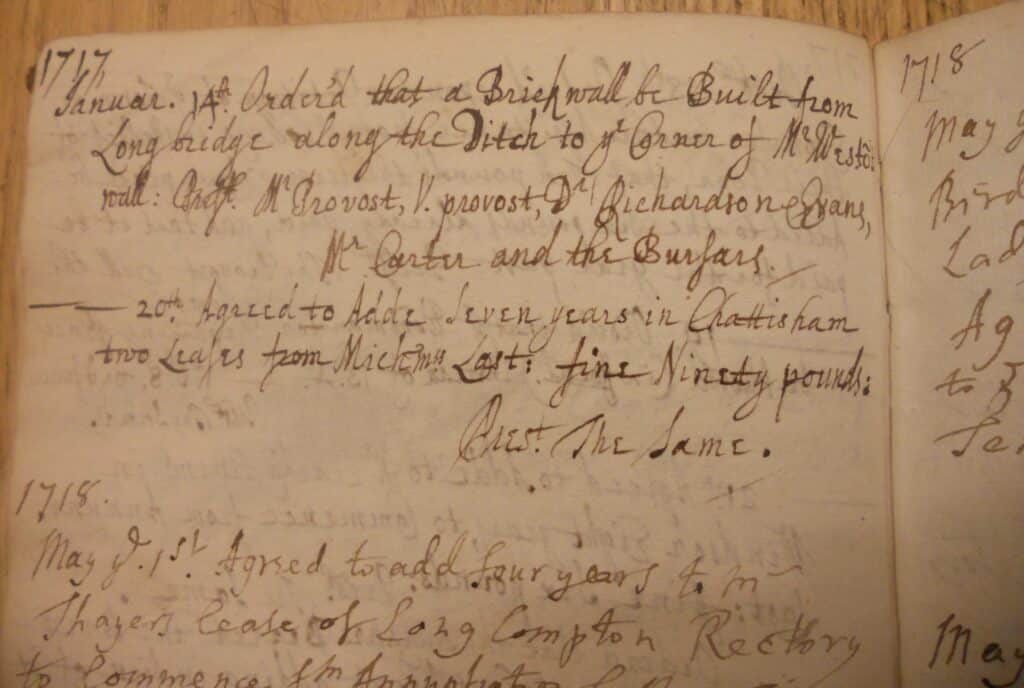 1717
Januar. 14th. Order'd that a Brick wall be Built from
Long bridge along the Ditch to ye Corner of Mr. Westō:
wall: Prest. Mr Provost, V. provost, Dr Richardson Evans,
Mr. Carter and the Bursars.
20th. Agreed to Adde Seven years in Chattisham
two Leases from Michms Last: fine Ninety pounds:
Prest. The Same.
1718.
May ye. 1st. Agreed to add four years to Mr
Thayers Lease of Long Compton Rectory
to Commence fm Annunciatio
1718
May
Bird
Lad
Ag
to
Se
May